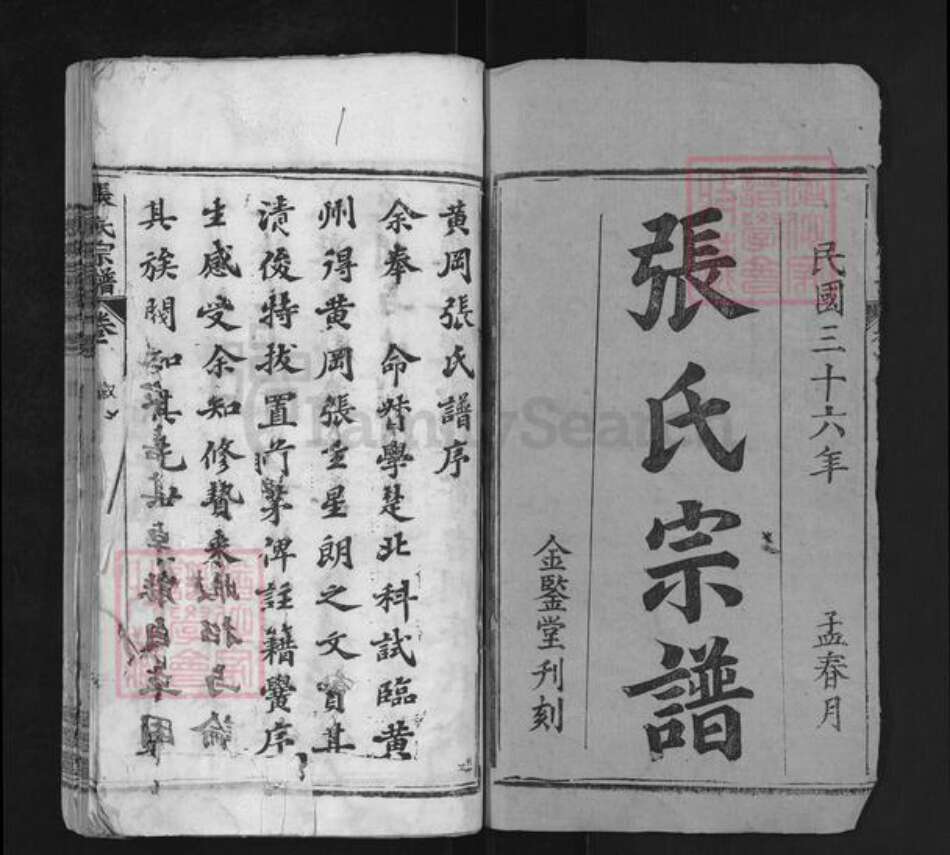 民國三十六年 孟春月
張氏宗譜
金鑒堂刋刻
黄岡張氏譜序
余奉 命督學楚北科試臨黄
州得黄岡張生星朗之文賞其
清俊特拔置 俾註籍黌序
生感受余知修贄來 論
其族閥知其先世
張氏宗譜
卷
FamilySearch